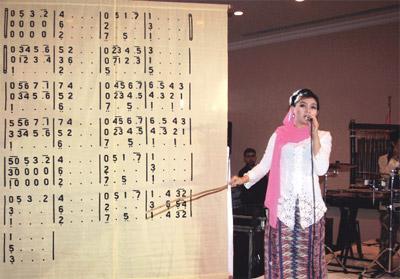 0 5 3 . 2 | 4 . . . | 0 5 1 . 7 | 1 . . .
0 0 0 0 | 6 . . . | 2 . . . | 3 . . .
0 0 0 0 | 2 . . . | 7 . 5 . | 1 . . .
0 3 4 5 . 6 | 5 2 . . | 0 2 3 4 . 5 | 3 . . .
0 1 2 3 . 4 | 3 6 . . | 0 7 1 2 . 3 | 1 . . .
1 . . . | 5 . . . | 5 . . .
0 5 6 7 . 1 | 7 4 . . | 0 4 5 6 . 7 | 6 . 5 4 3
0 3 4 5 . 6 | 5 2 . . | 0 2 3 4 . 5 | 4 . 3 2 1
1 . . . | . . . . | 5 . . . | 1 . . .
5 5 6 7 . 1 | 7 4 . . | 0 4 5 6 . 7 | 6 . 5 4 3
3 3 4 5 . 6 | 5 2 . . | 0 2 3 4 . 5 | 4 . 3 2 1
1 . . . | . . . . | 5 . . . | 1 . . .
5 0 5 3 . 2 | 4 . . . | 0 5 1 . 7 | 1 . . .
3 0 0 0 0 | 6 . . . | 2 . . . | 3 . . .
1 0 0 0 0 | 2 . . . | 7 . 5 . | 1 . . .
0 5 3 . 2 | 4 . . . | 0 5 1 . 7 | 1 . 4 3 2
3 . . . | 6 . . . | 2 . . . | 3 . 6 5 4
1 . . . | 2 . . . | 7 . 5 . | 1 . 4 3 2
1 . . .
5 . . .
3 . . .